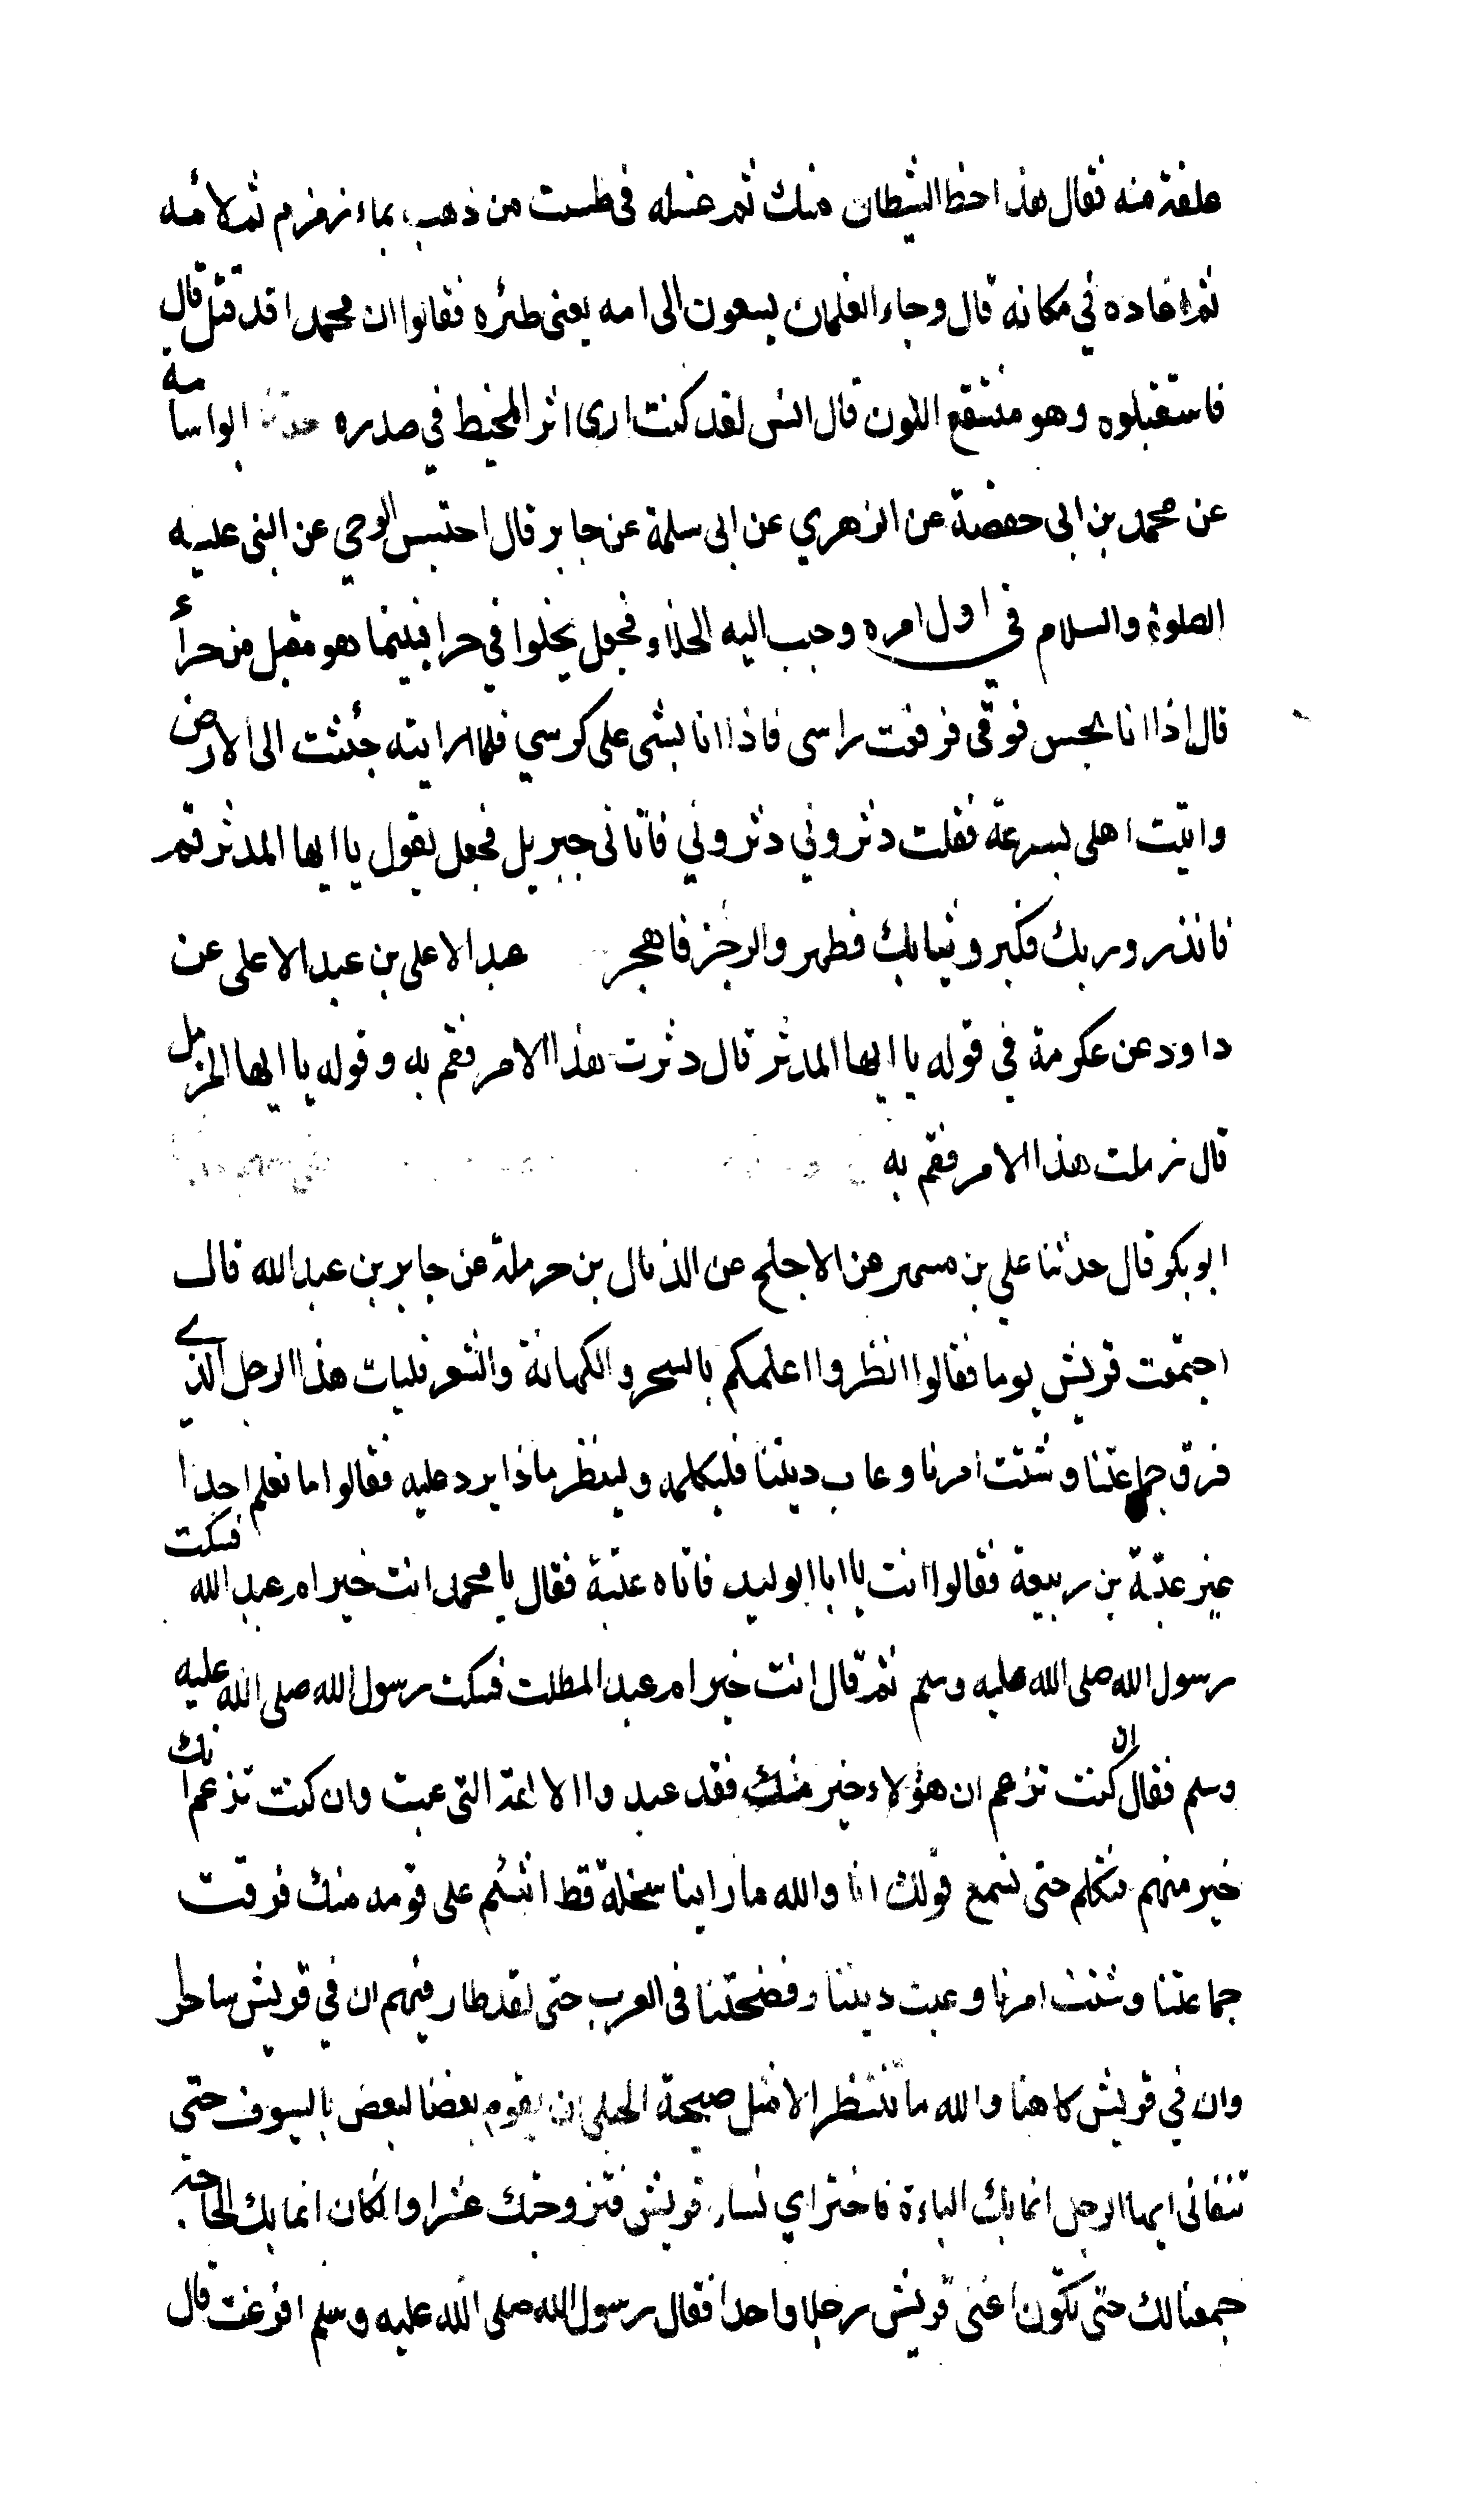 علقة منه فقال هذا حظ الشيطان منك ثم غسله في طست من ذهب بماء زمزم ثم لأمه
ثم اعاده في مكانه قال وجاء الغلمان يسعون الى امه يعني ظئره فقالوا ان محمدا قد قتل قال
فاستقبلوه وهو منتقع اللون قال انس لقد كنت ارى اثر المخيط في صدره حدثنا ابو اسامة
عن محمد بن ابي حفصة عن الزهري عن ابي سلمة عن جابر قال احتبس الوحي عن النبي عليه
الصلوة والسلام في اول امره وحبب اليه الخلاء فجعل يخلوا في حرا فبينما هو مقبل من حراء
قال اذا انا بحس فوقي فرفعت راسي فاذا انا بشى على كرسي فلما رايته جئثت الى الارض
واتيت اهلى بسرعة فقلت دثروني دثروني فاتاني جبريل فجعل يقول يا ايها المدثر قم
فانذر وربك فكبر وثيابك فطهر والرجز فاهجر عبد الاعلى بن عبد الاعلى عن
داود عن عكرمة في قوله يا ايها المدثر قال دثرت هذا الامر فقم به وقوله يا ايها المزمل
قال زملت هذا الامر فقم به
ابو بكر قال حدثنا علي بن مسهر عن الاجلح عن الذيال بن حرملة عن جابر بن عبد الله قال
اجتمعت قريش يوما فقالوا انظروا اعلمكم بالسحر والكهانة والشعر فليات هذا الرجل الذي
فرق جماعتنا وشتت امرنا وعاب ديننا فليكلمه ولينظر ماذا يرد عليه فقالوا ما نعلم احدا
غير عتبة بن ربيعة فقالوا انت يا ابا الوليد فاتاه عتبة فقال يا محمد انت خير ام عبد الله فسكت
رسول الله صلى الله عليه وسلم ثم قال انت خير ام عبد المطلب فسكت رسول الله صلى الله عليه
وسلم فقال ان كنت تزعم ان هؤلاء خير منك فقد عبدوا الالهة التي عبت وان كنت تزعم انك
خير منهم فتكلم حتى نسمع قولك انا والله ما راينا سخلة قط اشئم على قومه منك فرقت
جماعتنا وشتت امرنا وعبت ديننا وفضحتنا في العرب حتى لقد طار فيهم ان في قريش ساحرا
وان في قريش كاهنا والله ما ننتظر الا مثل صيحة الحبلى ان يقوم بعضنا لبعض بالسيوف حتى
نتفانى ايها الرجل ان كان انما بك الباءة فاختر اي نساء قريش فنزوجك عشرا وان كان انما بك الحاجة
جمعنا لك حتى تكون اغنى قريش رجلا واحدا فقال رسول الله صلى الله عليه وسلم افرغت قال